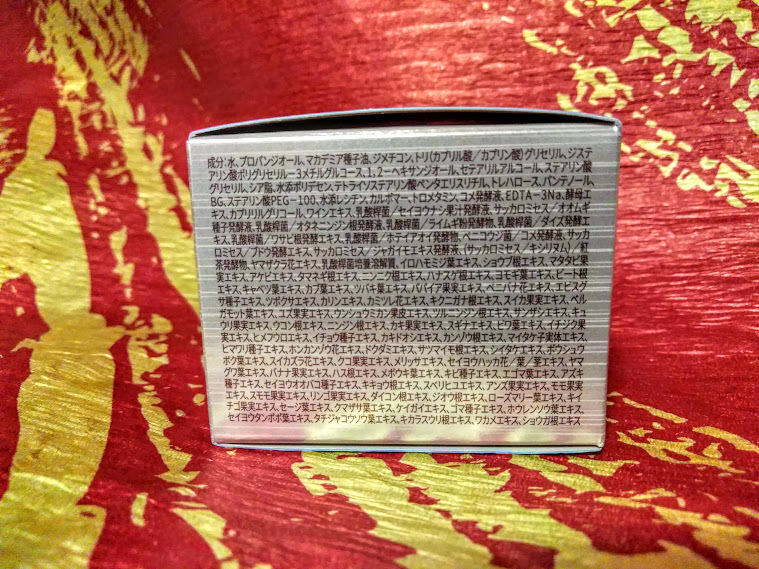 成分:水、プロパンジオール、マカデミア種子油、ジメチコン、トリ(カプリル酸/カプリン酸)グリセリル、ジステ
アリン酸ポリグリセリル-3メチルグルコース、1,2-ヘキサンジオール、セテアリルアルコール、ステアリン酸
グリセリル、シア脂、水添ポリデセン、テトライソステアリン酸ペンタエリスリチル、トレハロース、パンテノール、
BG、ステアリン酸PEG-100、水添レシチン、カルボマー、トロメタミン、コメ発酵液、EDTA-3Na、酵母エ
キス、カプリリルグリコール、ワインエキス、乳酸桿菌/セイヨウナシ果汁発酵液、サッカロミセス/オオムギ
種子発酵液、乳酸桿菌/オタネニンジン根発酵液、乳酸桿菌/ライムギ粉発酵物、乳酸桿菌/ダイズ発酵
エキス、乳酸桿菌/ワサビ根発酵エキス、乳酸桿菌/ホテイアオイ発酵物、ベニコウジ菌/コメ発酵液、サッカ
ロミセス/ブドウ発酵エキス、サッカロミセス/ジャガイモエキス発酵液、(サッカロミセス/キシリヌム)/紅
茶発酵物、ヤマザクラ花エキス、乳酸桿菌培養溶解質、イロハモミジ葉エキス、ショウブ根エキス、マタタビ果
実エキス、アケビエキス、タマネギ根エキス、ニンニク根エキス、ハナスゲ根エキス、ヨモギ葉エキス、ビート根
エキス、キャベツ葉エキス、カブ葉エキス、ツバキ葉エキス、パパイア果実エキス、ベニバナ花エキス、エビスグ
サ種子エキス、ツボクサエキス、カリンエキス、カミツレ花エキス、キクニガナ根エキス、スイカ果実エキス、ベル
ガモット葉エキス、ユズ果実エキス、ウンシュウミカン果皮エキス、ツルニンジン根エキス、サンザシエキス、キュ
ウリ果実エキス、ウコン根エキス、ニンジン根エキス、カキ果実エキス、スギナエキス、ビワ葉エキス、イチジク果
実エキス、ヒメフウロエキス、イチョウ葉エキス、カキドオシエキス、カンゾウ根エキス、マイタケ子実体エキス、
ヒマワリ種子エキス、ホンカンゾウ花エキス、ドクダミエキス、サツマイモ根エキス、シイタケエキス、ボウシュウ
ボク葉エキス、スイカズラ花エキス、クコ果実エキス、メリッサエキス、セイヨウハッカ花/葉/茎エキス、ヤマ
グワ葉エキス、バナナ果実エキス、ハス根エキス、メボウキ葉エキス、キビ種子エキス、エゴマ葉エキス、アズキ
種子エキス、セイヨウオオバコ種子エキス、キキョウ根エキス、スベリヒユエキス、アンズ果実エキス、モモ果実
エキス、スモモ果実エキス、リンゴ果実エキス、ダイコン根エキス、ジオウ根エキス、ローズマリー葉エキス、キイ
チゴ果実エキス、セージ葉エキス、クマザサ葉エキス、ケイガイエキス、ゴマ種子エキス、ホウレンソウ葉エキス、
セイヨウタンポポ葉エキス、タチジャコウソウ葉エキス、キカラスウリ根エキス、ワカメエキス、ショウガ根エキス